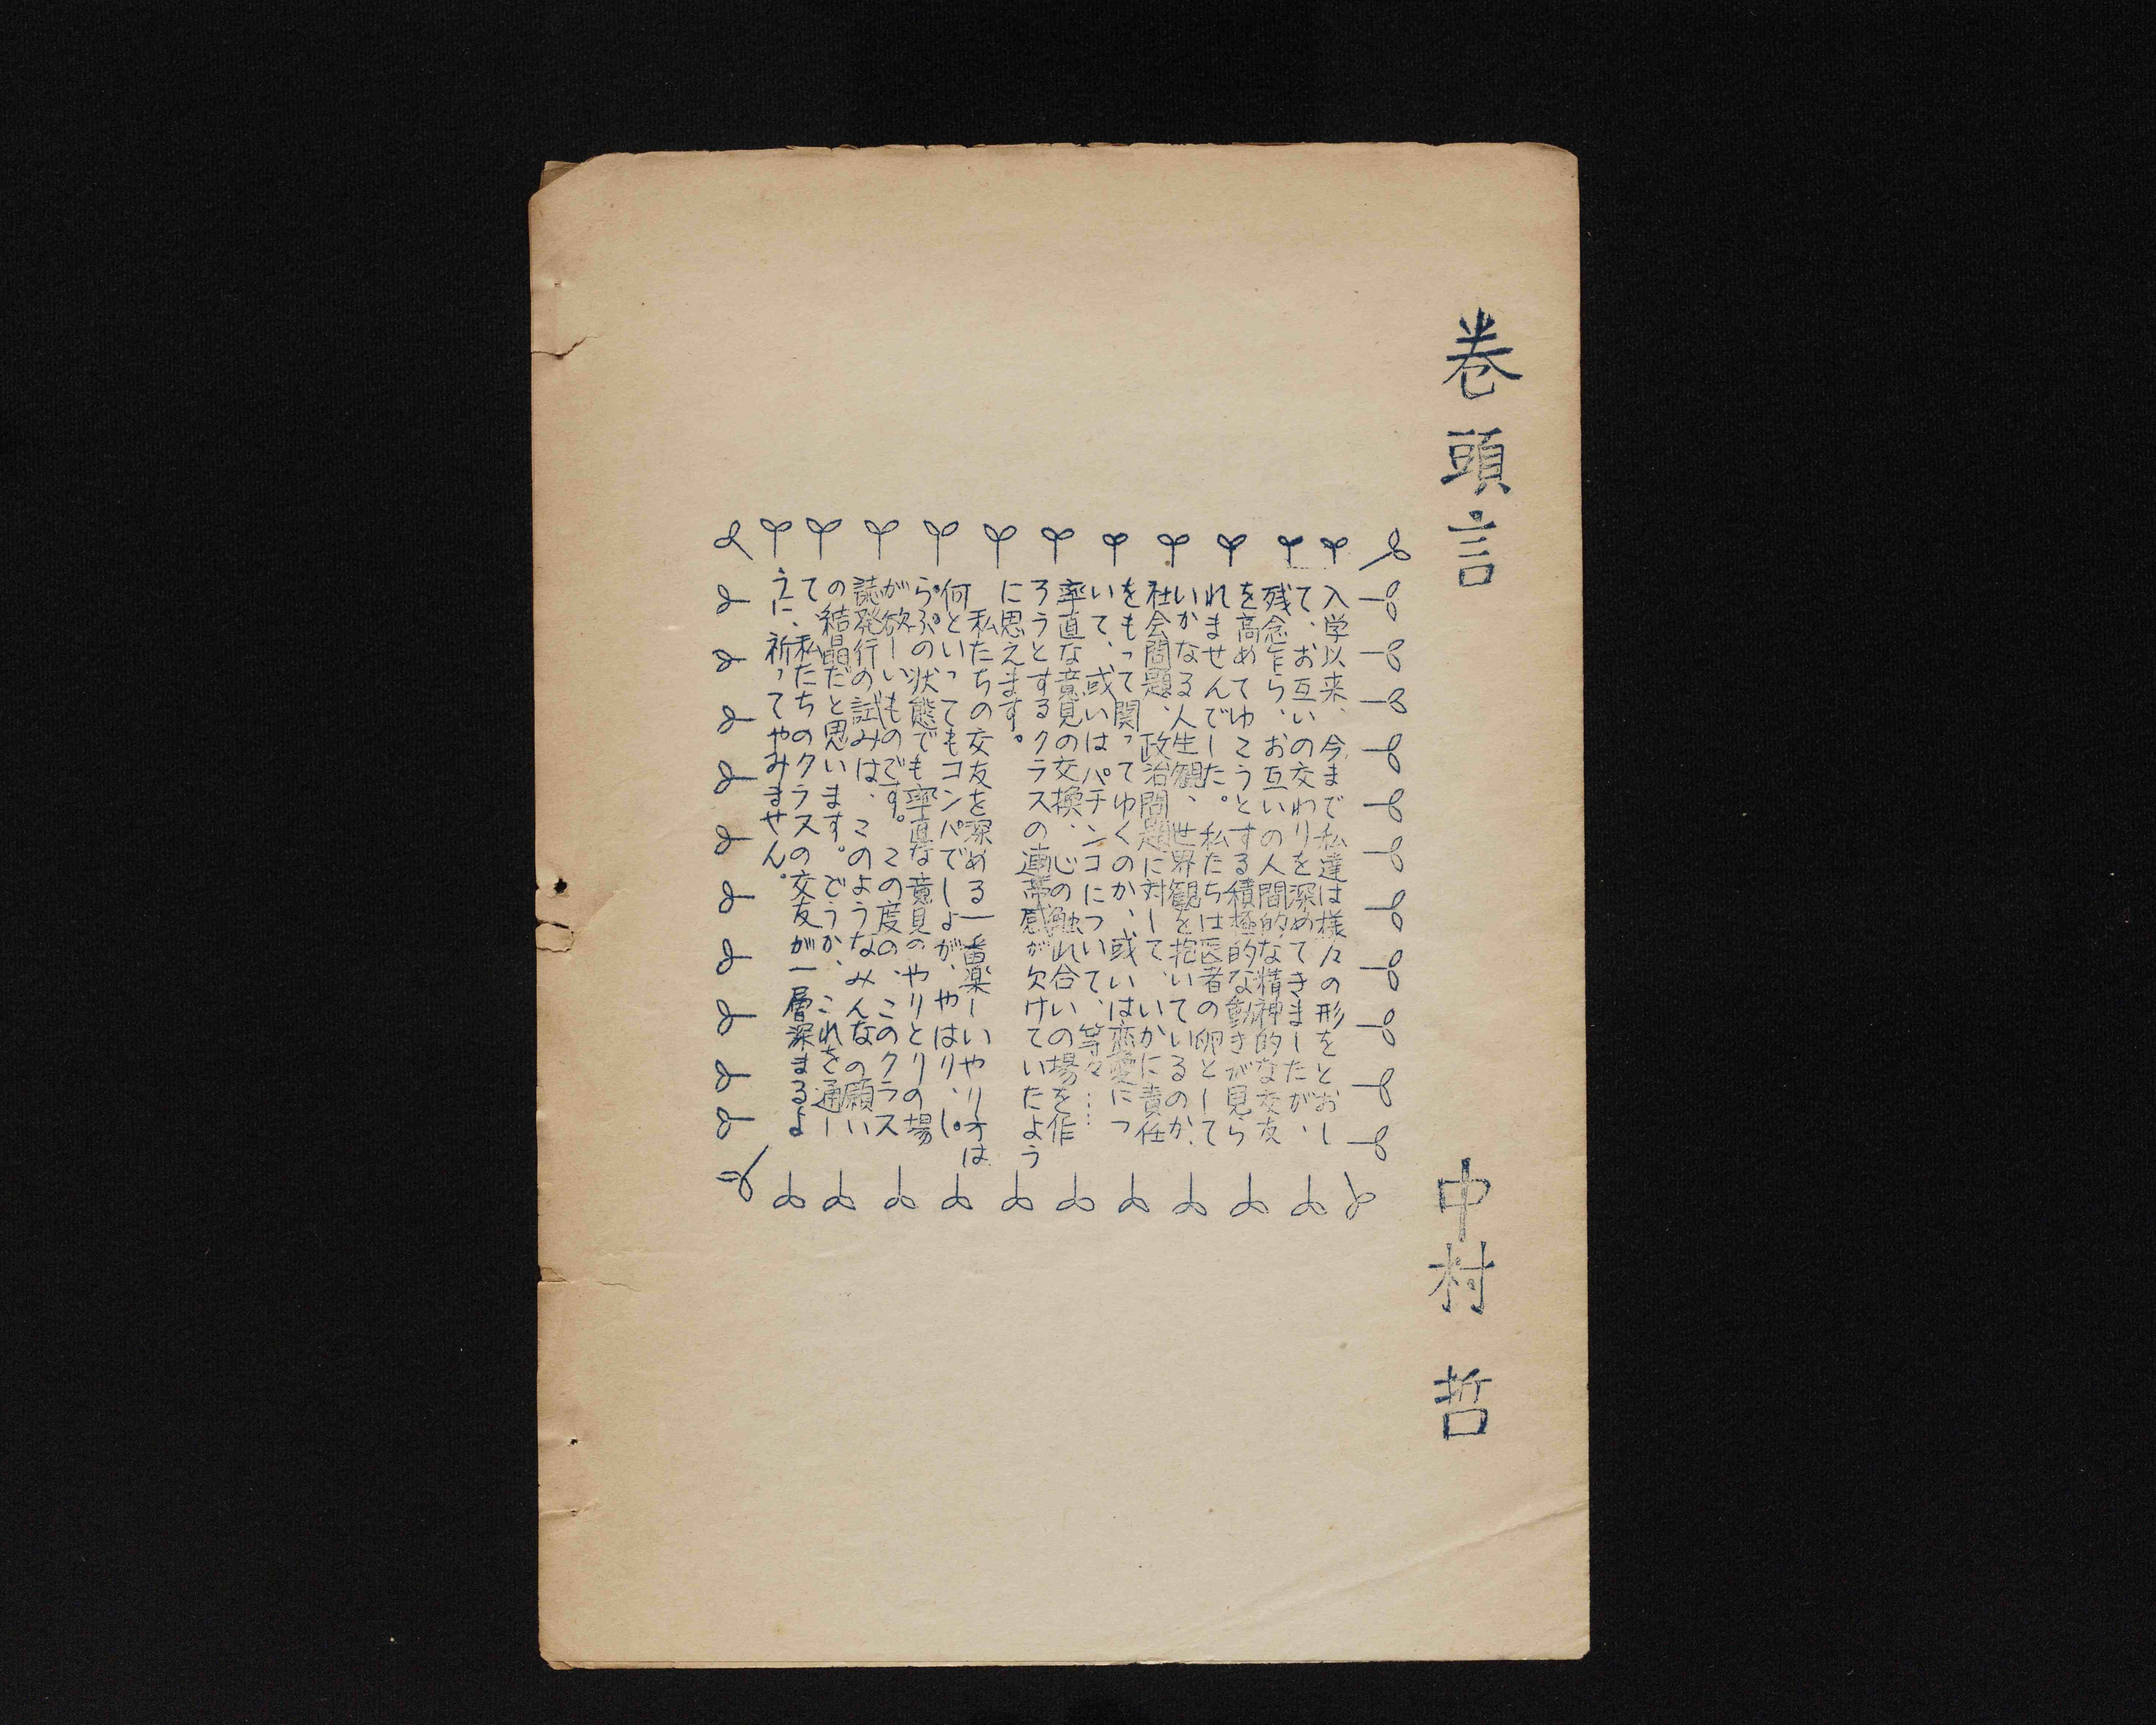 巻頭言
中村 哲
入学以来、今まで私達は様々の形をとおし
て、お互いの交わりを深めてきましたが、
残念乍ら、お互いの人間的な精神的な交友
を高めてゆこうとする積極的な動きが見ら
れませんでした。私たちは医者の卵として
いかなる人生観、世界観を抱いているのか、
社会問題、政治問題に対して、いかに責任
をもって関ってゆくのか、或いは恋愛につ
いて、或いはパチンコについて、等々……
率直な意見の交換、心の触れ合いの場を作
ろうとするクラスの連帯感が欠けていたよう
に思えます。
私たちの交友を深める一番楽しいやり方は
何といってもコンパでしょが、やはり、し
らふの状態でも率直な意見のやりとりの場
が欲しいものです。この度の、このクラス
誌発行の試みは、このようなみんなの願い
の結晶だと思います。どうか、これを通し
て、私たちのクラスの交友が一層深まるよ
うに、祈ってやみません。